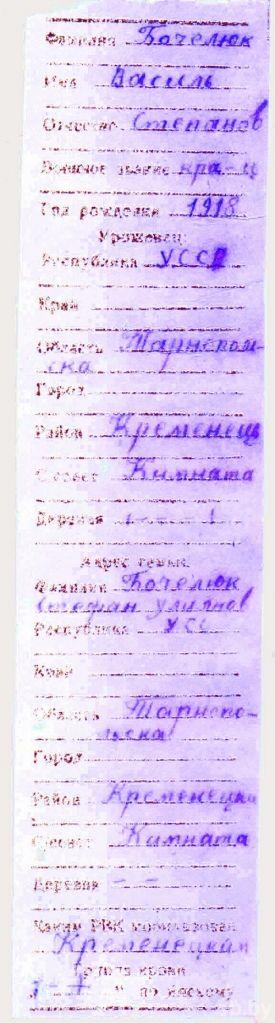 Фамилия Бочелюк
Имя Василь
Отчество Степанов
Воинское звание кра-ц
Год рождения 1918
Уроженец:
Республика УССР
Край
Область Тарнопол-
ска
Город
Район Кременець
С/совет Кимната
Деревня
Адрес семьи
Фамилия Бочелюк
Стефан
Республика УСС
Край
Область Тарнопо-
льска
Город
Район Кременецки
С/совет Кимната
Деревня - -
Каким РВК мобилизован
Кременецкий
Группа крови
по Янскому